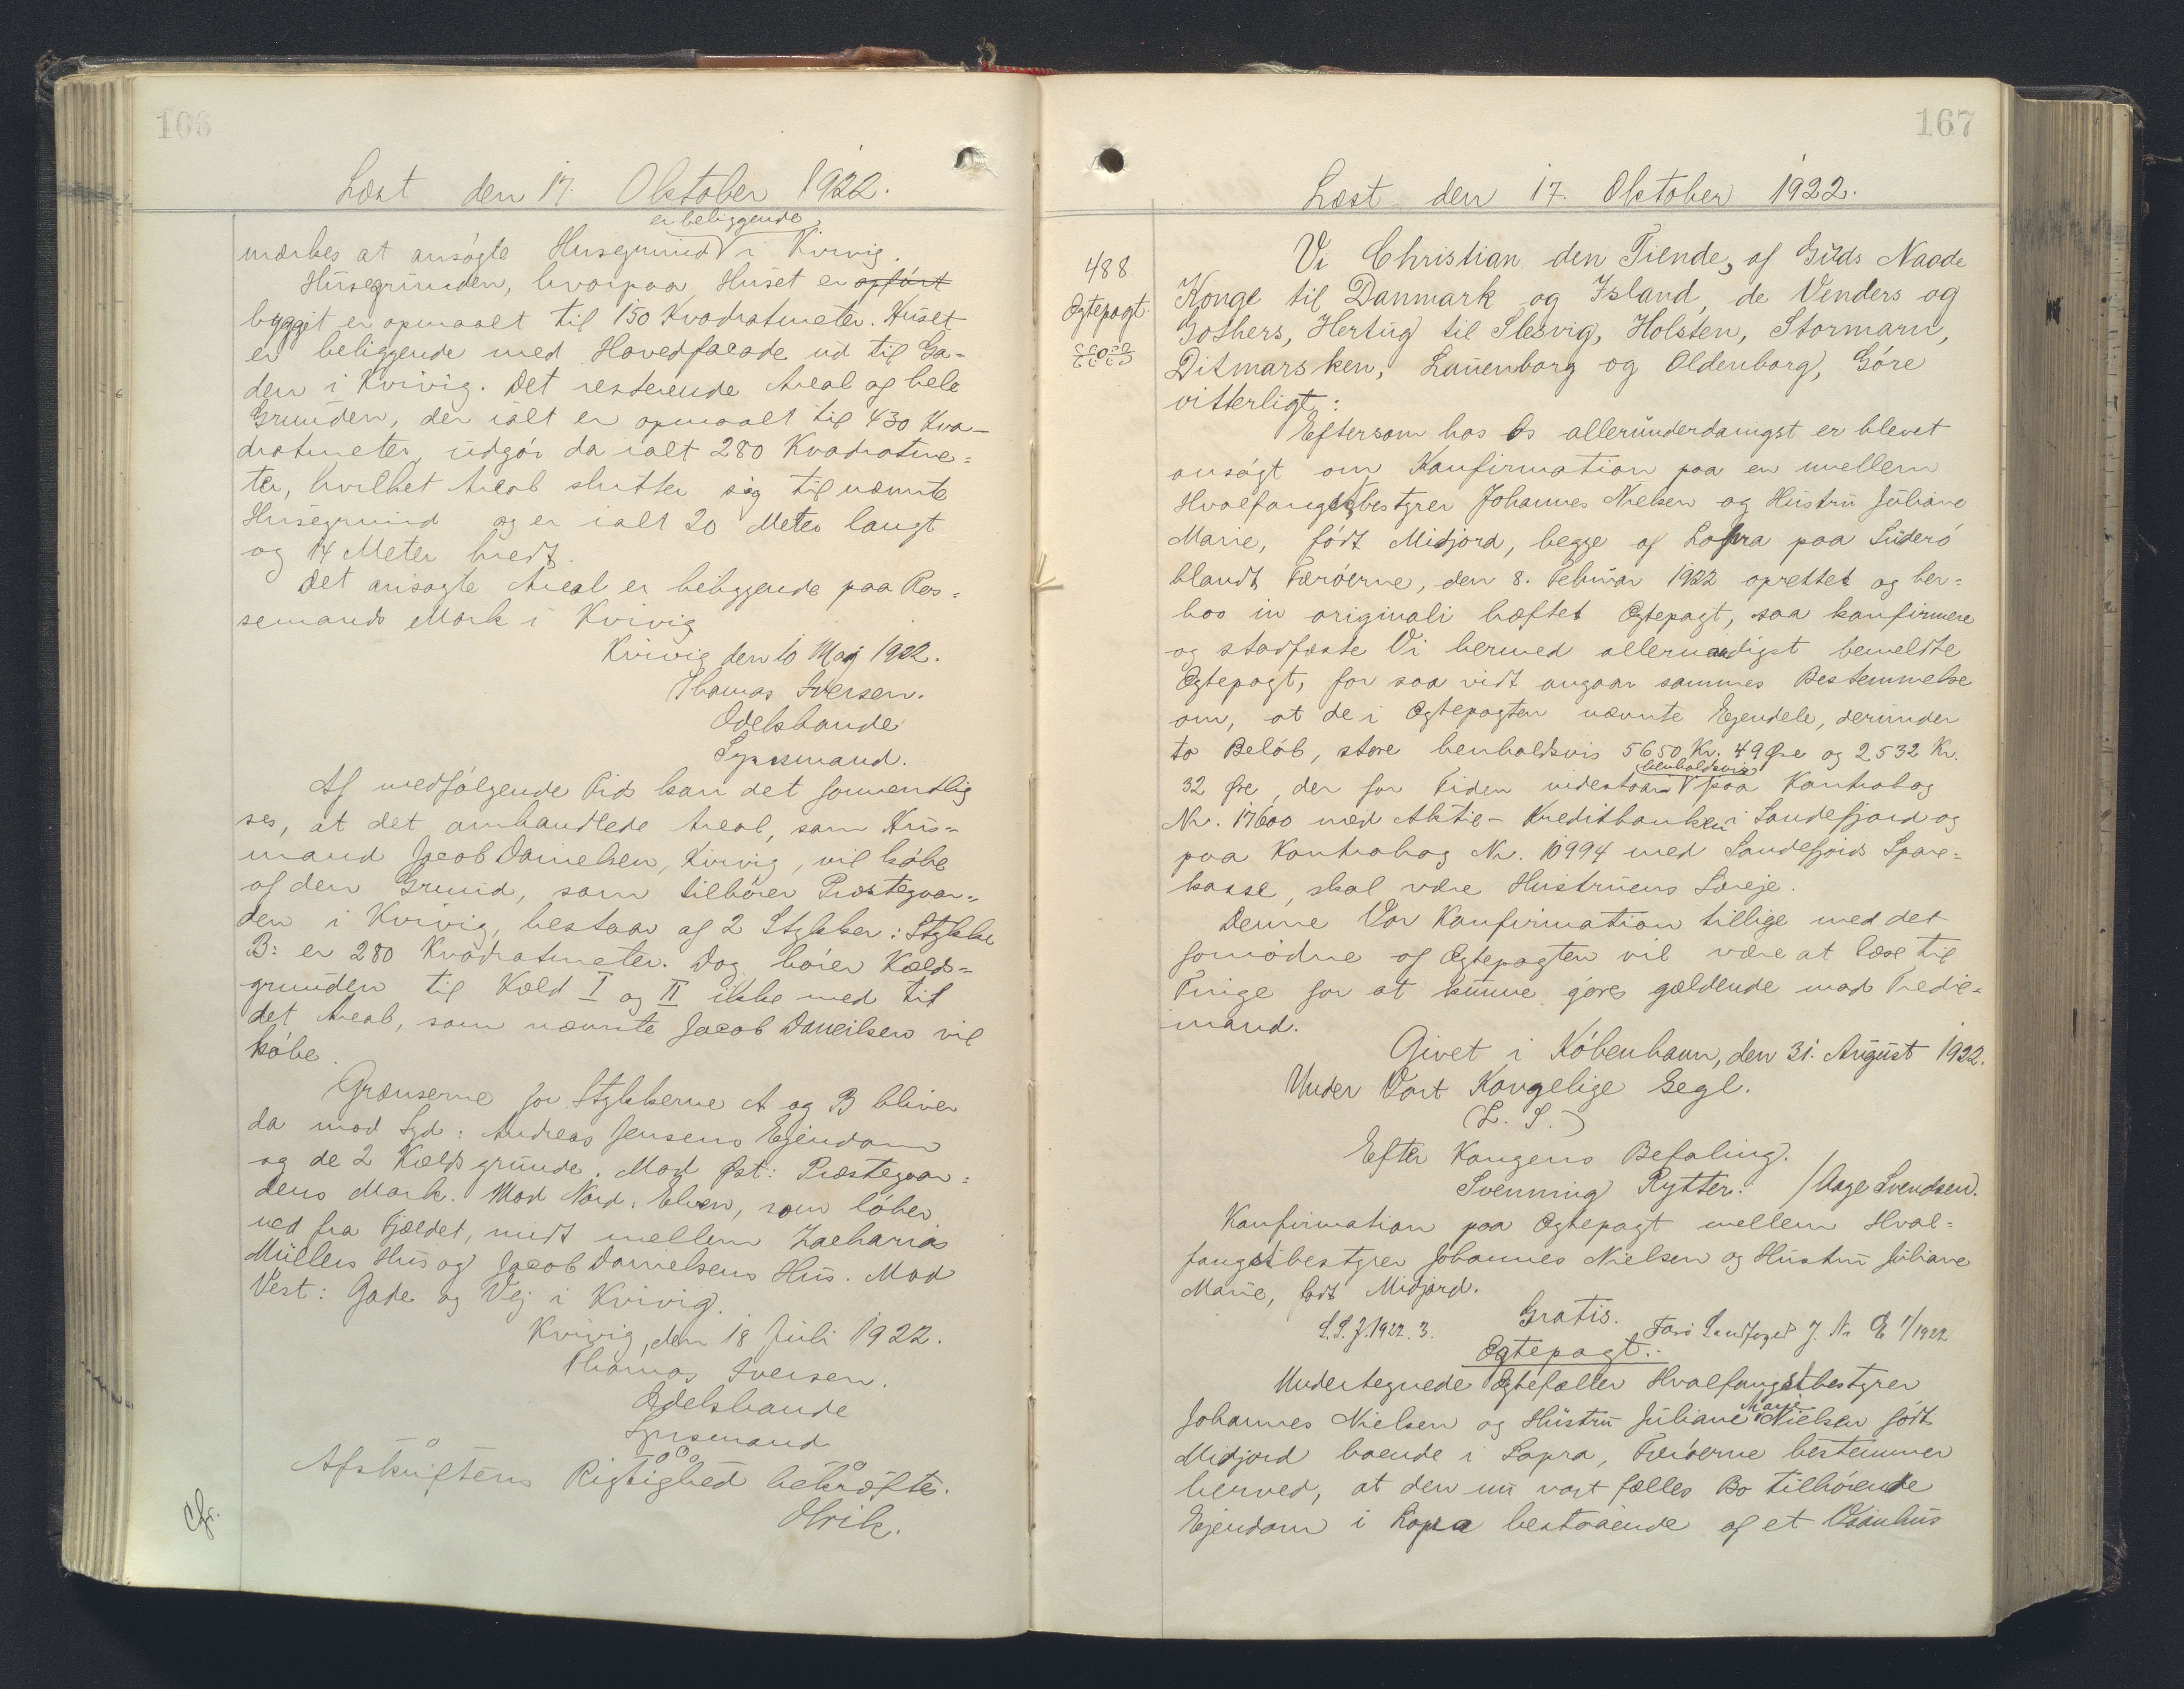 166
Læst den 17. Oktober 1922.
er beliggende
mærkes at ansøgte Husegrund V i Kvivig.
Husegrunden, hvorpaa Huset er opført
bygget er opmaalt til 150 Kvadratmeter. Huset
er beliggende med Hovedfacade ud til Ga-
den i Kvivig. Det resterende Areal og hele
Grunden, der ialt er opmaalt til 430 Kva-
dratmeter, udgør da ialt 280 Kvadratme-
ter, hvilket Areal slutter sig til nævnte
Husegrund og er ialt 20 Meter langt
og 14 Meter bredt.
Det ansøgte Areal er beliggende paa Ros-
semands Mark i Kvivig
Kvivig den 10 Maj 1922.
Thomas Iversen.
Odelsbonde
Synsmand.
Af medfølgende Rids kan det formentlig
ses, at det omhandlede Areal, som Hus-
mand Jacob Danielsen, Kvivig, vil købe
af den Grund, som tilhører Præstegaar-
den i Kvivig, bestaar af 2 Stykker: Stykke
B: er 280 Kvadratmeter. Dog hører Kæld-
grunden til Kæld I og II ikke med til
det Areal, som nævnte Jacob Daneilsen vil
købe.
Grænserne for Stykkerne A og B bliver
da mod Syd: Andreas Jensens Ejendom
og de 2 Kældsgrunde. Mod Øst: Præstegaar-
dens Mark. Mod Nord. Elven, som løber
ned fra Fjældet, midt mellem Zacharias
Müllers Hus og Jacob Danielsens Hus. Mod
Vest: Gade og Vej i Kvivig.
Kvivig, den 18 Juli 1922.
Thomas Iversen.
Odelsbonde
Synsmand
Afskriftens Rigtighed bekræftes.
Cfr.
167
Læst den 17. Oktober 1922.
488
Ægtepagt.
Vi Christian den Tiende, af Guds Naade
Konge til Danmark og Island, de Venders og
Gothers, Hertug til Slesvig, Holsten, Stormarn,
Ditmarsken, Lauenborg og Oldenborg, Gøre
vitterligt:
Eftersom hos Os allerunderdanigst er blevet
ansøgt om Konfirmation paa en mellem
Hvalfangstbestyrer Johannes Nielsen og Hustru Juliane
Marie, født Midjord, begge af Lopra paa Suderø
blandt Færøerne, den 8. Februar 1922 oprettet og her-
hos in originali hæftet Ægtepagt, saa konfirmere
og stadfæste Vi hermed allernaadigst bemeldte
Ægtepagt, for saa vidt angaar sammes Bestemmelse
om, at de i Ægtepagten nævnte Ejendele, derunder
to Beløb, store henholdsvis 5650 Kr. 49 Øre og 2532 Kr.
henholdsvis
32 Øre, der for Tiden indestaar V paa Kontrabog
Nr. 17600 med Aktie-Kreditbanken i Sandefjord og
paa Kontrabog Nr. 10994 med Sandefjords Spare-
kasse, skal være Hustruens Særeje.
Denne Vor Konfirmation tillige med det
fornødne af Ægtepagten vil være at læse til
Tinge for at kunne gøres gældende mod Tredie-
mand.
Givet i København, den 31. August 1922.
Under Vort Kongelige Segl.
(L. S.)
Efter Kongens Befaling.
Svenning Rytter. / Aage Svendsen.
Konfirmation paa Ægtepagt mellem Hval-
fangstbestyrer Johannes Nielsen og Hustru Juliane
Marie, født Midjord.
Gratis.
S.S.J. 1922. 3. Færø Landfoged J. Nr E 1/1922
Ægtepagt.
Undertegnede Ægtefæller Hvalfangstbestyrer
Marie
Johannes Nielsen og Hustru Juliane V Nielsen født
Midjord boende i Lopra, Færøerne bestemmer
herved, at den nu vort fælles Bo tilhørende
Ejendom i Lopra bestaaende af et Vaanhus